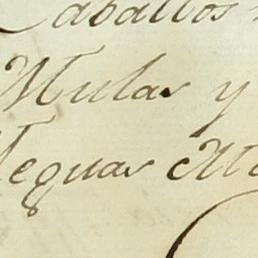 Caballos
Mulas y
Yeguas